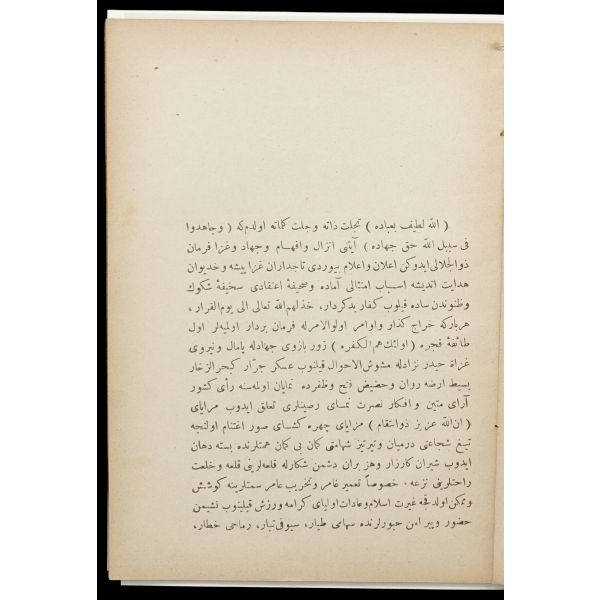 ( الله لطيف بعباده ) تجلت ذاته وجلت كلماته اولدمكه ( وجاهدوا
فى سبيل الله حق جهاده ) آيتنى انزال وافهام وجهاد وغزا فرمان
ذوالجلالى ايدوكن اعلان واعلام بيوردى تاجداران غزا پيشه وخديوان
هدايت انديشه اسباب امتثالى آماده وصحيفهٔ اعتقادى سخيفهٔ شكوك
وظنوندن ساده قيلوب كفار بدكردار، خذلهم الله تعالى الى يوم القرار،
هر باركه خراج كذار واوامر اولوالامرله فرمان بردار اولميه‌لر اول
طائفهٔ فجره ( اولئك هم الكفره ) زور بازوى جهادله پامال ونيروى
غزاة حيدر نژادله مشوش الاحوال قيلنوب عسكر جرّار كبحر الزخار
بسيط ارضه روان وحضيض فتح وظفرده نمايان اولمه‌سنه رأى كشور
آراى متين و افكار نصرت نماى رصينلرى تعلق ايدوب مراياى
( ان الله عزيز ذوانتقام ) مزاياى چهره كشاى صور اغتنام اولنجه
تيغ شجاعتى درميان وتيرتيز شهامتى كمان بى كمان همتلرنده بسته دهان
ايدوب شيران كارزار وهزبران دشمن شكارله قلعه‌لرينى قلعه وخلعت
راحتلرينى نزعه ، خصوصاً تعمير غامر وتخريب عامر سمتلرينه كوشش
وممكن اولدقجه غيرت اسلام وعادات اولياى كرامه ورزش قيلينوب نشيمن
حضور وپيرامن حبورلرنده سهامى طيار، سيوفى تبار، رماحى خطار،